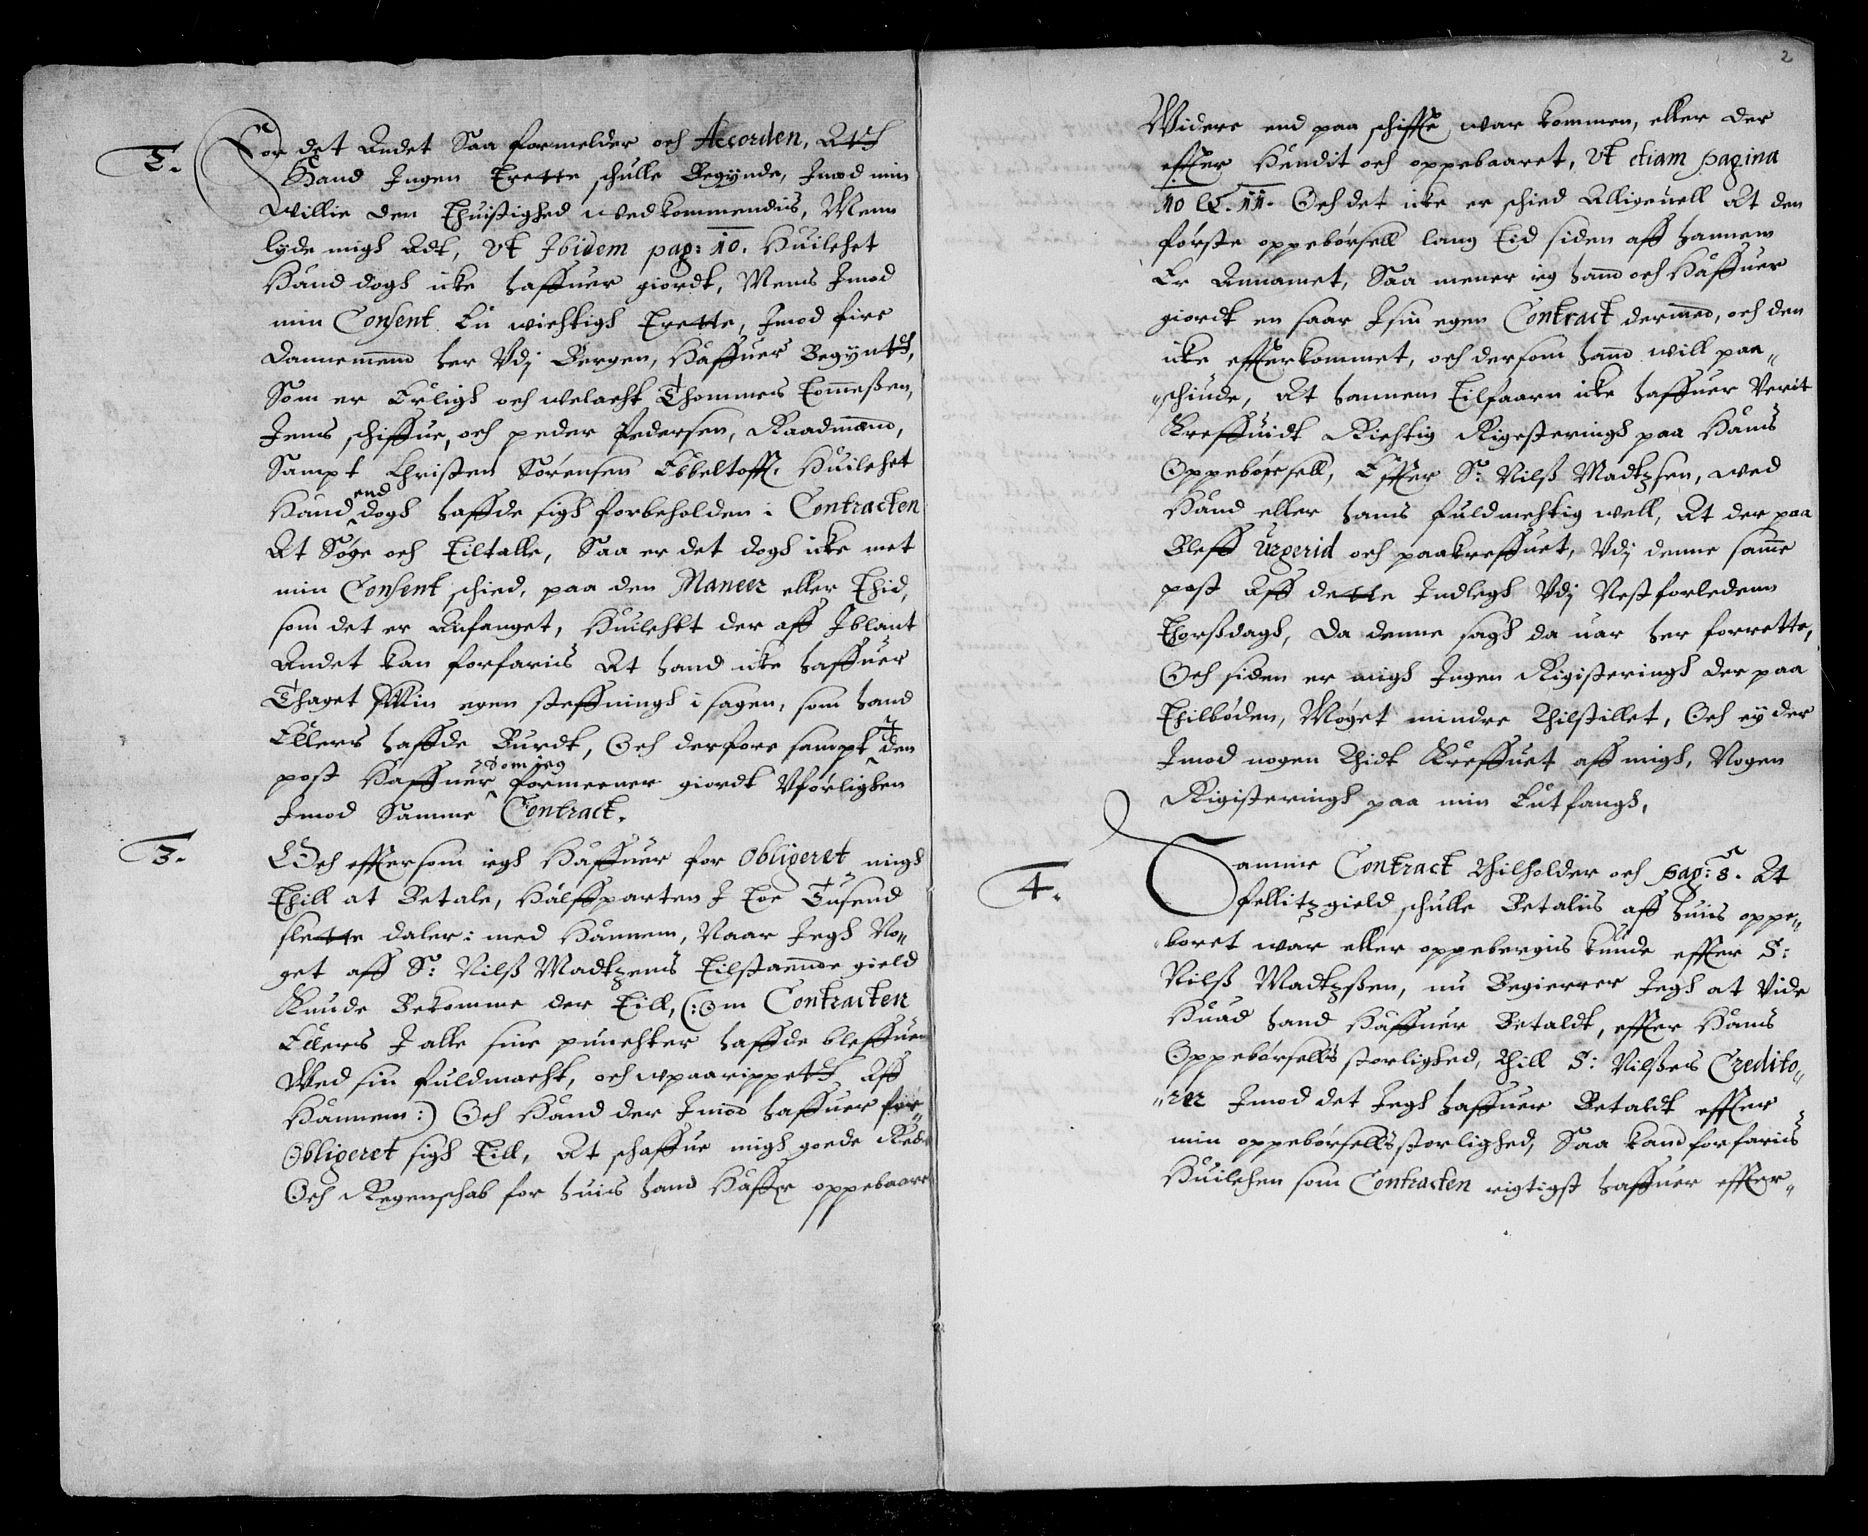 2.
For det Andet Saa formelder och Accorden, Att
Hand Ingen Trette schulle Begynde, Imod min
willie den Thuistighed vedkommendis, Menn
lyde migh Adt, Vt Ibidem pag: 10. Huilchet
Hand dogh icke haffuer giordt, Mens Imod
min Consent En wichtigh Trette, Imod fire
Dannemennd her Vdj Bergen, Haffuer Begyntt,
Som er Erligh och welacht Thommes Tommeßen,
Jens schiffue, och peder Pedersen, Raadmænd,
Sampt Christen Sørensen Ebbeltofft. Huilchet
Hand end dogh haffde sigh forbeholden i Contracten
At Søge och Tiltalle, Saa er det dogh icke met
min Consent schied, paa den Maneer eller Thid,
som det er Anfanget, Huilchtt der aff Iblant
Andet kan forfaris At hand icke haffuer
Thaget Min egen steffningh i sagen, som hand
Ellers haffde Burdt, Och derfore sampt I den
post Haffuer som jeg formeener giordt Vførlighen
Imod Samme Contract.
3.
Och effttersom iegh Haffuer for obligeret migh
Thill at Betale, Halffparten I Toe Tusend
slette daler: med Hannem, Naar Jegh No,,
get aff S: Nilß Madtzens Tilstaaende gield
Kunde Bekomme der Till, (: Om Contracten
Ellers I alle sine puncter haffde bleffuen
Wed sin fuldmacht, och wpaarippett Aff
Hannem:) Och Hand der Imod haffuer for,,
Obligeret sigh Till, At schaffue migh goede Rede
Och Regenschab for huis hand Haffr oppebaaret
2
Widere end paa schifftte war kommen, eller der
effter Hendit och oppebaaret, Vt etiam pagina
10 et 11. Och det icke er schied Alligeuell At den
første oppebørsell lang Tid siden aff hannem
Er Annamet, Saa mener ieg hand och Haffuer
giordt en saar Isin egen Contract dermed, och den
icke effterkommet, och dersom hand will paa,,
,,schiude, At hannem Tilfaarn icke haffuer Verit
Kreffuidt Richtig Rigesteringh paa Hans
Oppebørsell, Effter S: Nilß Madtzsen, wed
Hand eller hans fuldmehtig well, At der paa
Bleff Urgerid och paakreffuet, Vdj denne samme
post Aff dette Indlegh Vdj Nestforledenn
Thorßdagh, Da denne sagh da uar her forrette,
Och siden er migh Ingen Rigisteringh der paa
Thilbøden, Møget mindre Thilstillet, Och ey der
Imod nogen Thidt Kreffuet aff migh, Nogen
Rigisteringh paa min Entfangh.
4.
Samme Contract Thilholder och pag: 8. At
fellitzgield schulle Betalis aff huis oppe,,
boret war eller oppebergis kunde effter S:
Nilß Madtzßen, nu Begierer Jegh at Vide
Huad hand Haffuer Betaldt, effter Hans
Oppebørsells storlighed, Thill S: Nilßes Credito,,
,,rer Imod det Jegh haffuer Betaldt effter
min oppebørsells storlighed, Saa kand forfaris
Huilchen som Contracten rigtigst haffuer effter,,